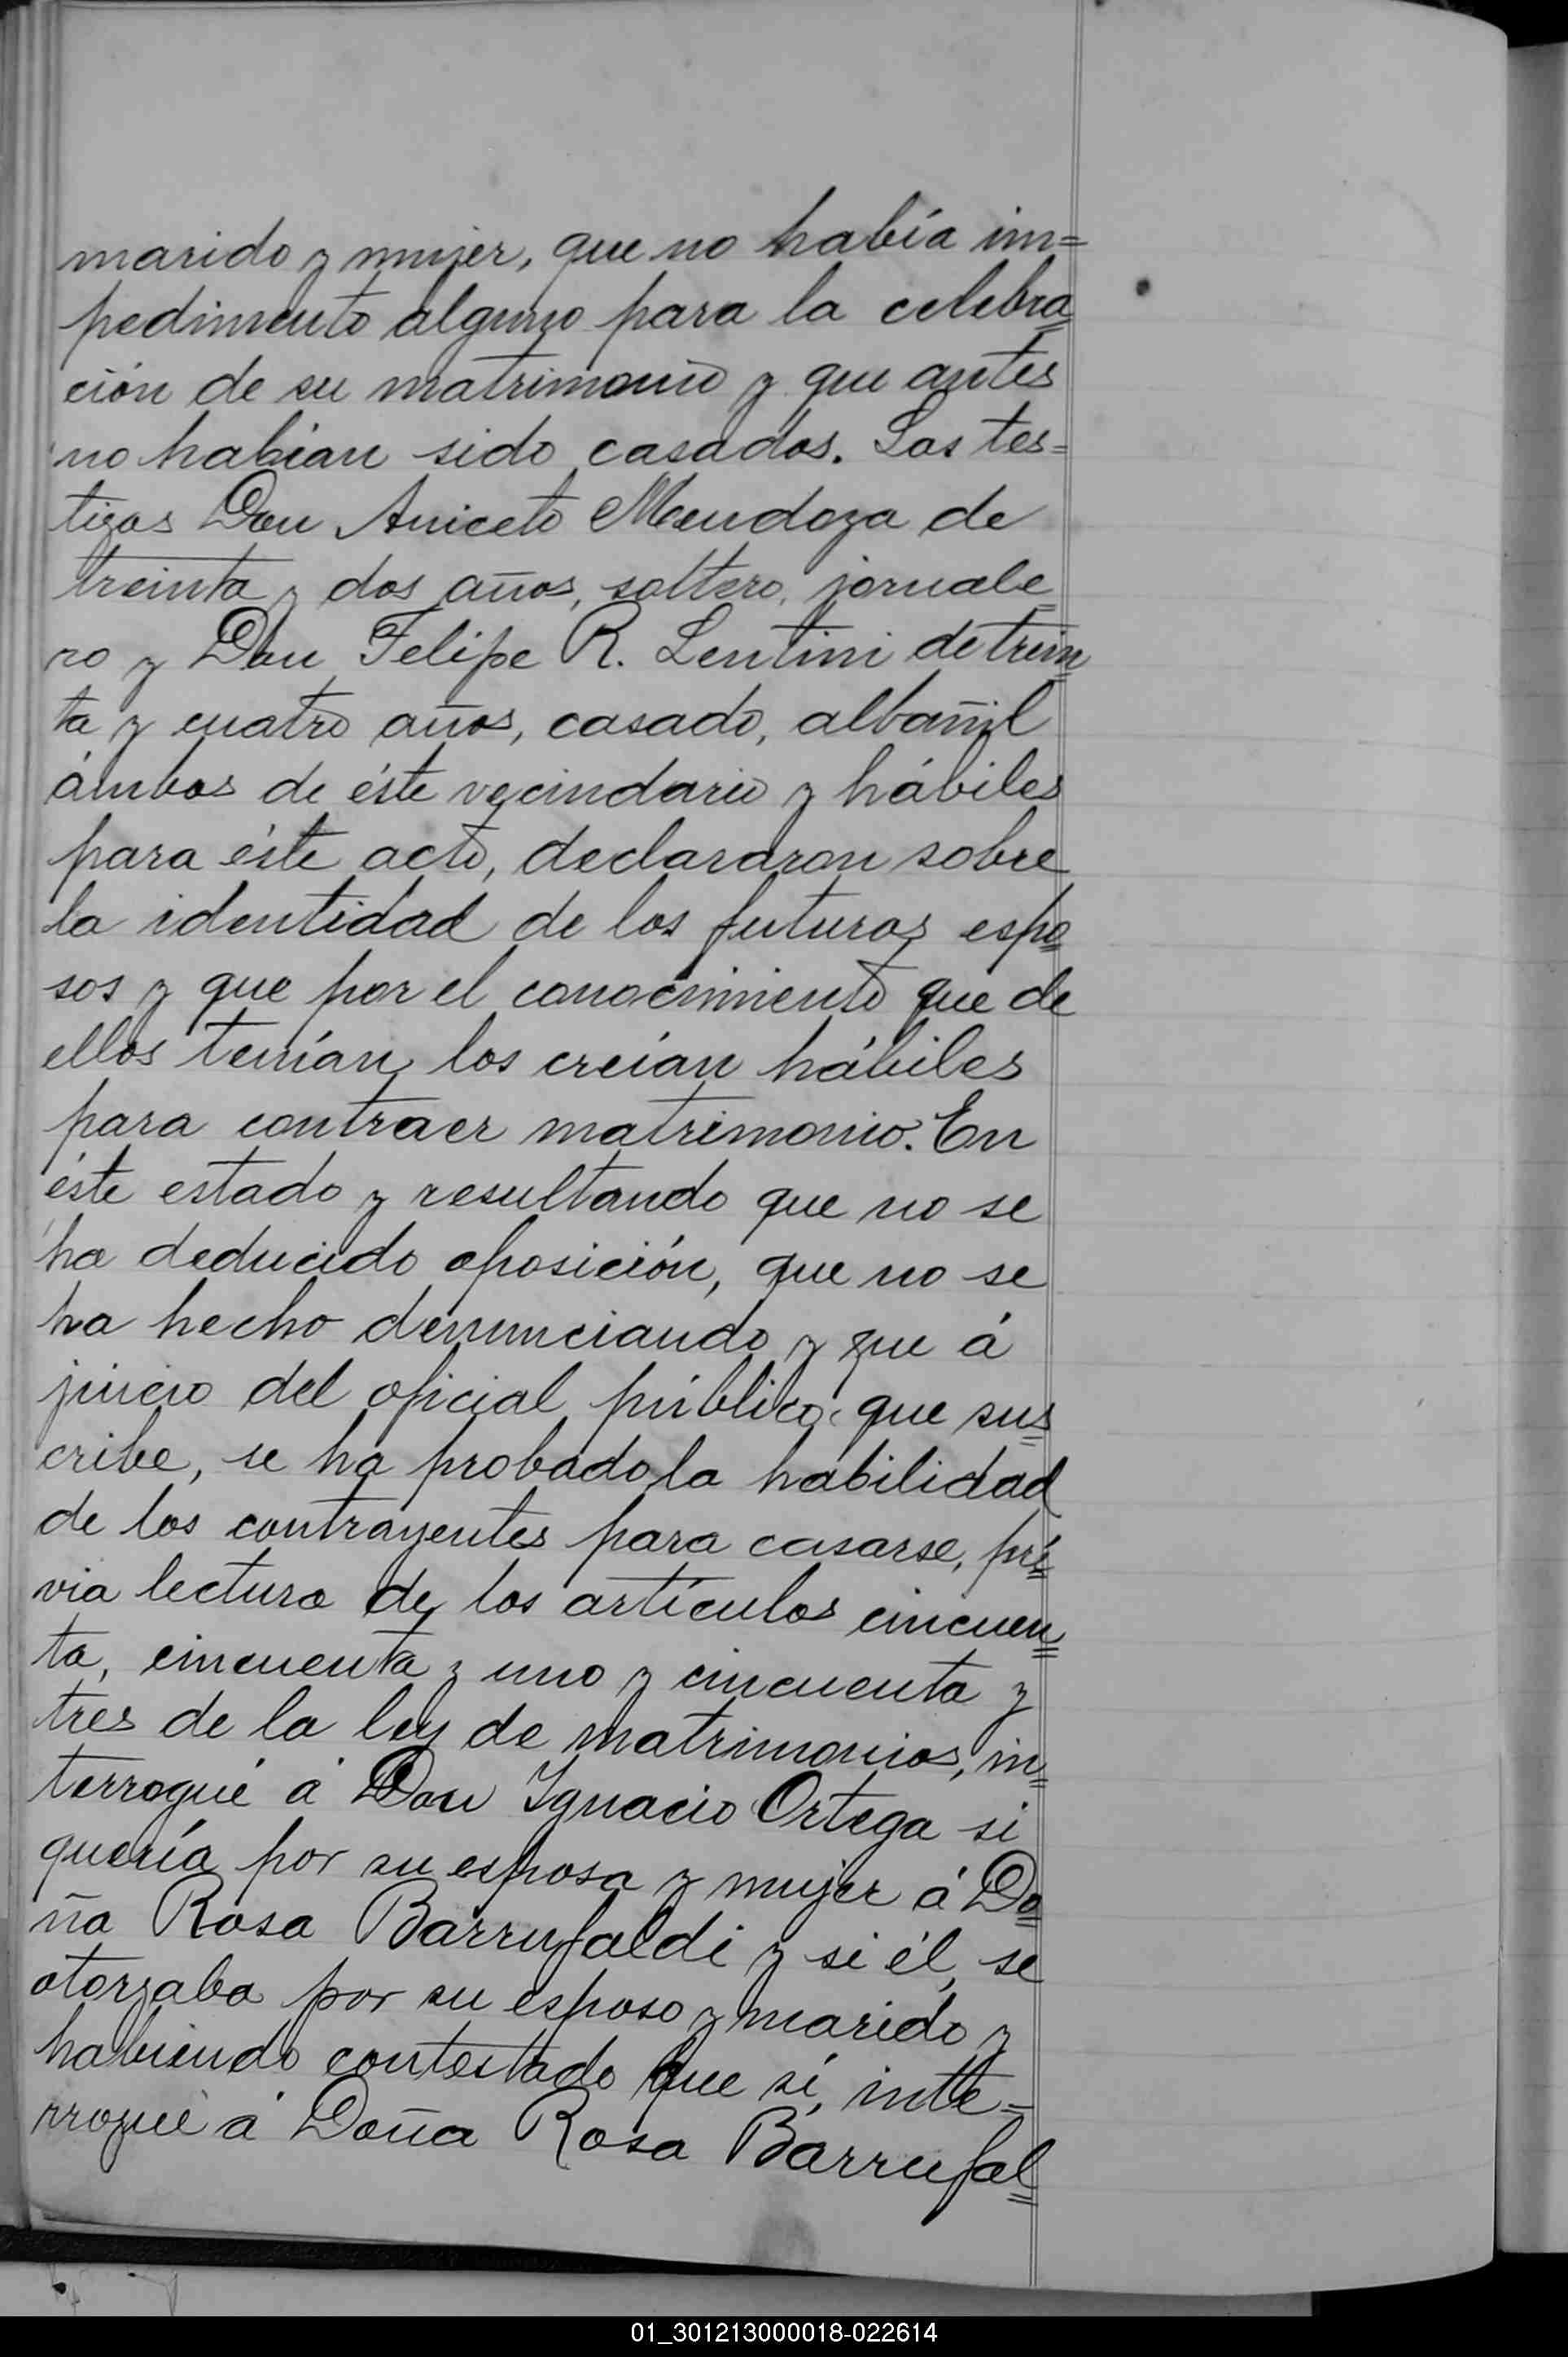 marido y mujer, que no había im=
pedimento alguno para la celebra=
ción de su matrimonio y que antes
no habían sido casados. Los tes=
tigos Don Aniceto Mendoza de
treinta y dos años, soltero, jornale=
ro y Don Felipe R. Lentini de trein=
ta y cuatro años, casado, albañil
ámbos de éste vecindario y hábiles
para éste acto, declararon sobre
la identidad de los futuros espo=
sos y que por el conocimiento que de
ellos tenían, los creían hábiles
para contraer matrimonio. En
éste estado y resultando que no se
ha deducido oposición, que no se
ha hecho denunciando y que á
juicio del oficial público que sus=
cribe, se ha probado la habilidad
de los contrayentes para casarse, pré=
via lectura de los artículos cincuen=
ta, cincuenta y uno y cincuenta y
tres de la ley de matrimonios, in=
terrogué á Don Ignacio Ortega si
quería por su esposa y mujer á Do=
ña Rosa Barrufaldi y si él, se
otorgaba por su esposo y marido y
habiendo contestado que sí, inte=
rrogué á Doña Rosa Barrufal=
01_301213000018-022614